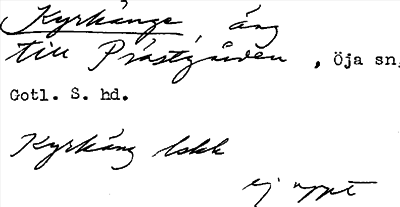 Kyrkänge äng
till Prästgården, Öja sn,
Gotl. S. hd.
Kyrkäng lskk
ej uppt